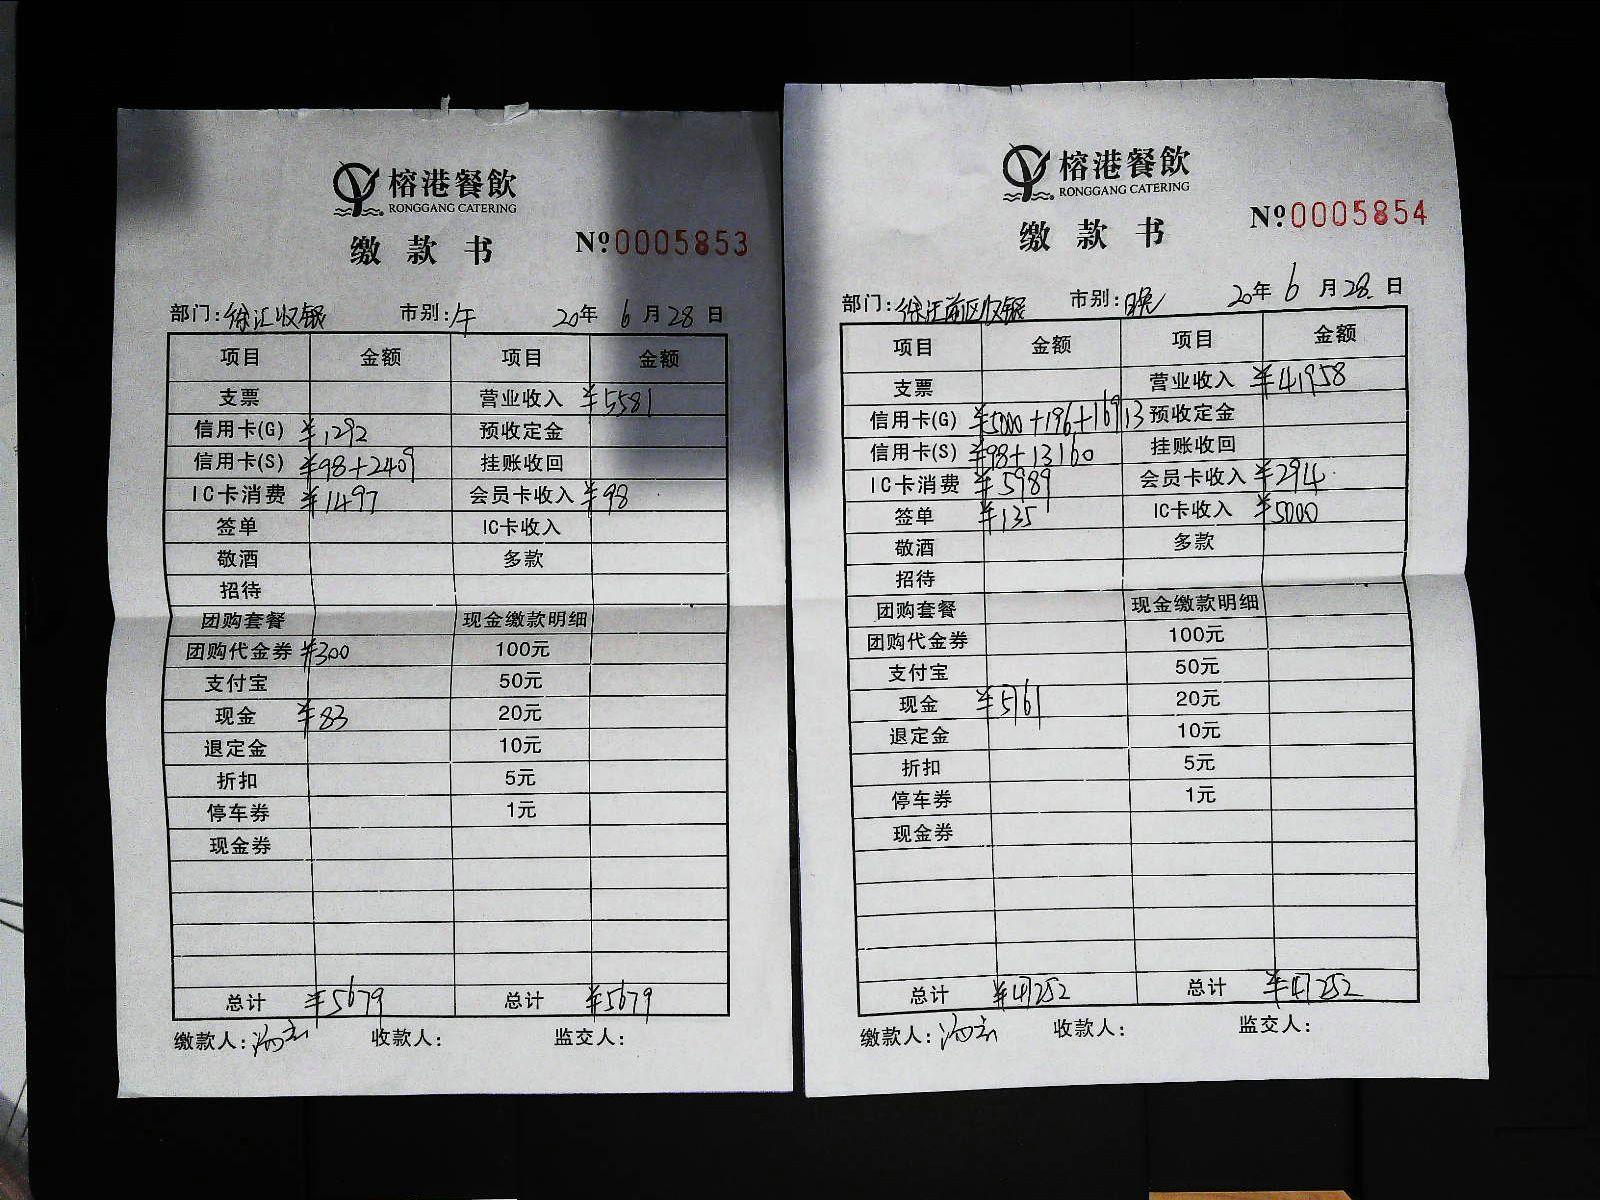 榕港餐飲
RONGGANG CATERING
缴款书 №0005853
部门:徐汇收银 市别:午 20年6月28日
项目 金额 项目 金额
支票 营业收入 ¥5581
信用卡(G) ¥1292 预收定金
信用卡(S) ¥98+2409 挂账收回
IC卡消费 ¥1497 会员卡收入 ¥98
签单 IC卡收入
敬酒 多款
招待
团购套餐 现金缴款明细
团购代金券 ¥300 100元
支付宝 50元
现金 ¥83 20元
退定金 10元
折扣 5元
停车券 1元
现金券
总计 ¥5679 总计 ¥5679
缴款人: 收款人: 监交人:
榕港餐飲
RONGGANG CATERING
缴款书 №0005854
部门:徐汇前区收银 市别:晚 20年6月28日
项目 金额 项目 金额
支票 营业收入 ¥41958
信用卡(G) ¥5000+196+16913 预收定金
信用卡(S) ¥98+13160 挂账收回
IC卡消费 ¥5989 会员卡收入 ¥294
签单 ¥135 IC卡收入 ¥5000
敬酒 多款
招待
团购套餐 现金缴款明细
团购代金券 100元
支付宝 50元
现金 ¥5761 20元
退定金 10元
折扣 5元
停车券 1元
现金券
总计 ¥47252 总计 ¥47252
缴款人: 收款人: 监交人: